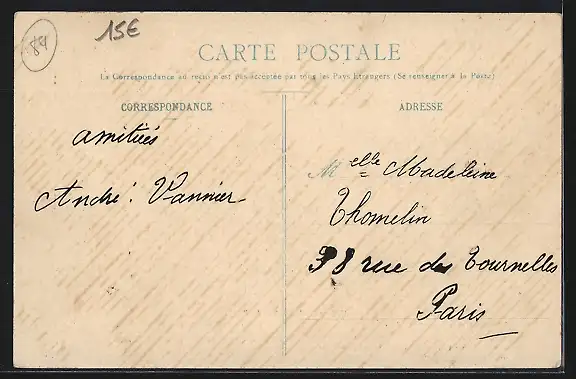 84
15€
CARTE POSTALE
La Correspondance au recto n'est pas acceptée par tous les Pays Etrangers (Se renseigner à la Poste)
CORRESPONDANCE
ADRESSE
amitiés
André Vannier
Melle Madeleine
Thomelin
38 rue des Tournelles
Paris